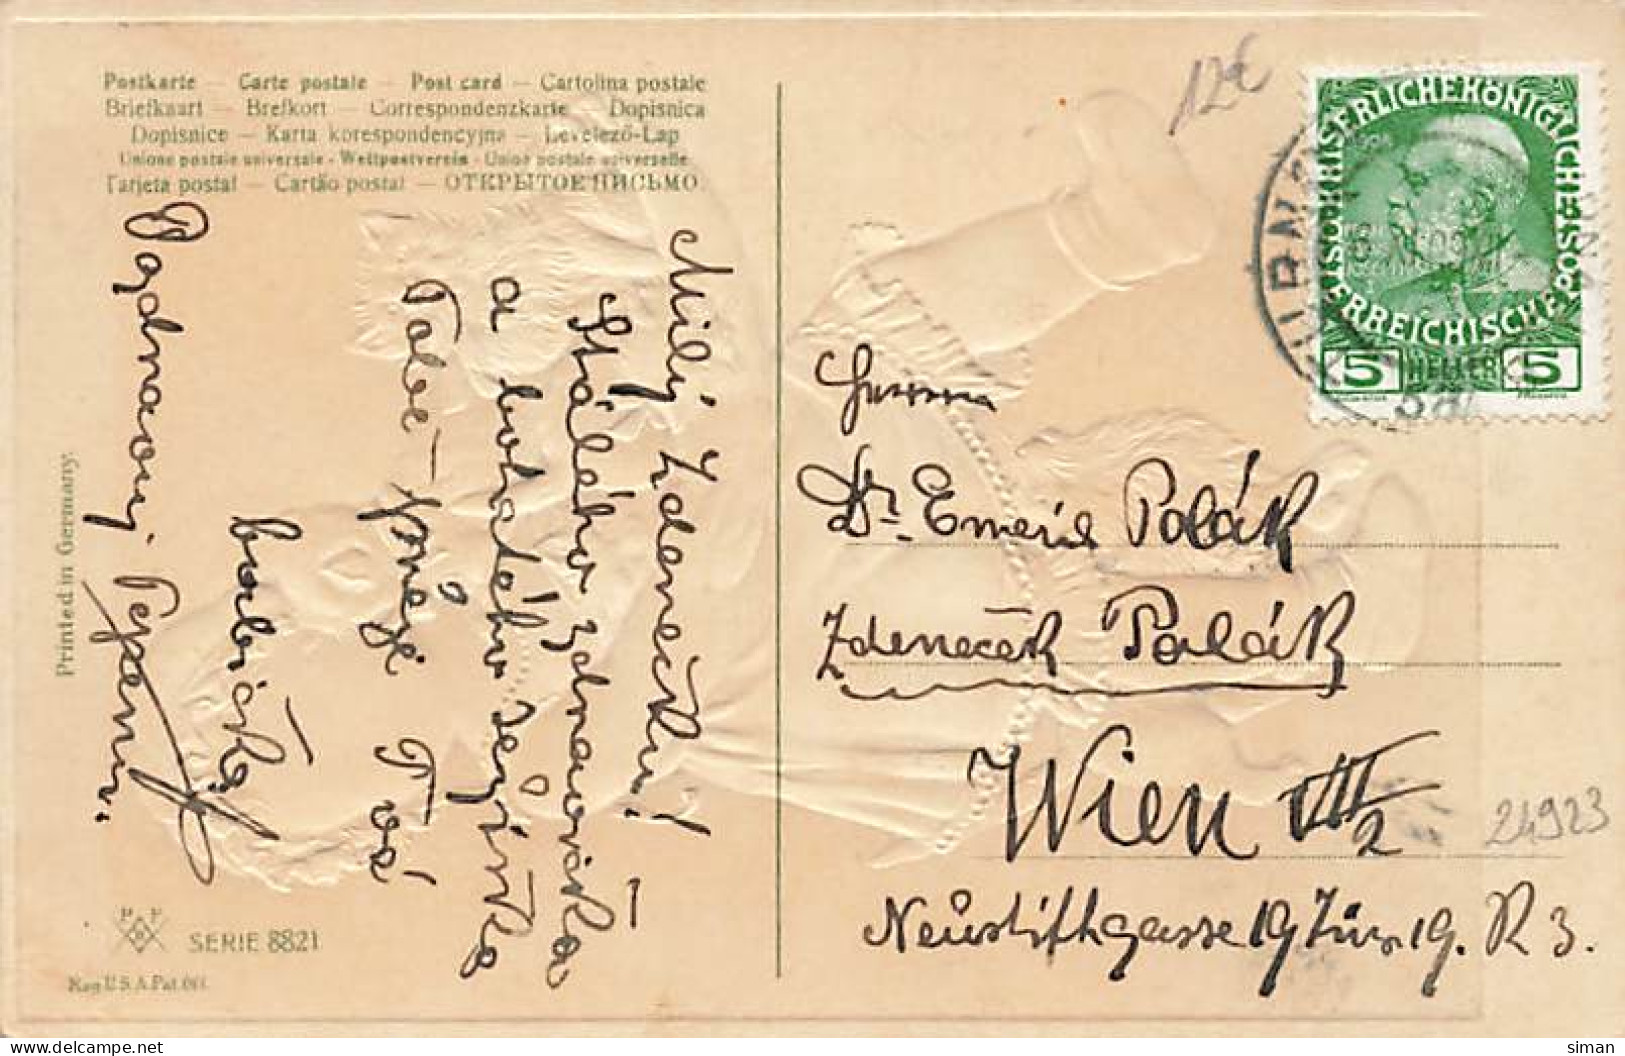 Postkarte – Carte postale – Post card – Cartolina postale
Briefkaart – Brefkort – Correspondenzkarte – Dopisnica
Dopisnice – Karta korespondencyjna – Levelező-Lap
Unione postale universale - Weltpostverein - Union postale universelle
Tarjeta postal – Cartão postal – ОТКРЫТОЕ ПИСЬМО.
Milý Zdenečku!
Stálého zdravíčka
a bohatého Ježíška
Tobě přeje Tvá
babička
Pozdravuj Pepému.
Printed in Germany.
P F B
SERIE 8821
Reg U.S.A. Pat. Off.
12€
KAISERLICHE KÖNIGLICHE ÖSTERREICHISCHE POST
5 HELLER 5
Herrn
Dr. Emeric Polák
Zdeneček Polák
Wien VII/2
Neustiftgasse 19, Tür 19. R 3.
24923
siman